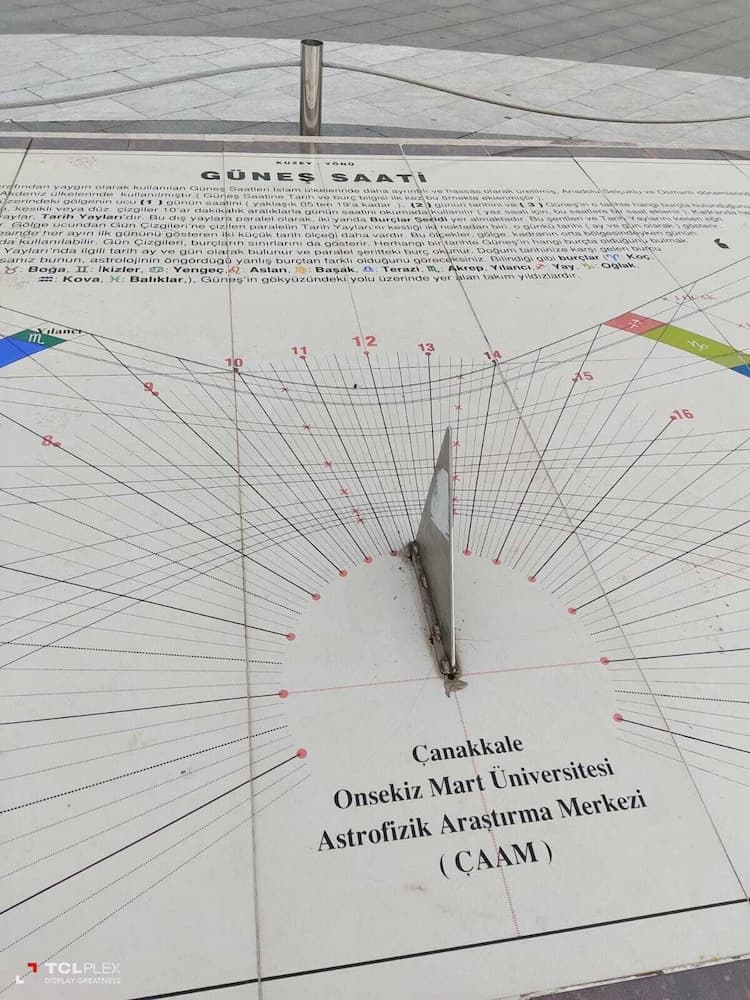 KUZEY YÖNÜ
GÜNEŞ SAATİ
arafından yaygın olarak kullanılan Güneş Saatleri İslam ülkelerinde daha ayrıntılı ve hassas olarak üretilmiş, Anadolu Selçuklu ve Osmanlı
Akdeniz ülkelerinde kullanılmıştır.( Güneş Saatine Tarih ve burç bilgisi ilk kez bu örnekte eklenmiştir.)
üzerindeki gölgenin ucu (1) günün saatini ( yaklaşık 05'ten 19'a kadar ), (2) günün tarihini ve (3) Güneş'in o tarihte hangi burçta bulunduğunu
kesikli veya düz çizgiler 10'ar dakikalık aralıklarla günün saatini okumada kullanılır ( yaz saati için, bu saatlere bir saat eklenir ).
aylar, Tarih Yayları'dır. Bu dış yaylara paralel olarak, iki yanda Burçlar Şeridi yer almaktadır. Bu şeritleri ve Tarih Yaylarını kesen
Gölge ucundan Gün Çizgileri'ne çizilen paralelin Tarih Yayları'nı kestiği iki noktadan biri, o günkü tarihi ( ay ve gün olarak ) gösterir.
esinde her ayın ilk gününü gösteren iki küçük tarih ölçeği daha vardır. Bu ölçekler, gölge, kadranın orta bölgesindeyken günün
da kullanılabilir. Gün Çizgileri, burçların sınırlarını da gösterir. Herhangi bir tarihte Güneş'in hangi burçta olduğunu bulmak
Yayları'nda ilgili tarih ay ve gün olarak bulunur ve paralel şeritteki burç okunur. Doğum tarihinize karşı gelen burcu
sanız bunun, astrolojinin öngördüğü yanlış burçtan farklı olduğunu göreceksiniz. Bilindiği gibi burçlar (♈: Koç,
♉: Boğa, ♊: İkizler, ♋: Yengeç, ♌: Aslan, ♍: Başak, ♎: Terazi, ♏: Akrep, Yılancı, ♐: Yay, ♑: Oğlak,
♒: Kova, ♓: Balıklar,), Güneş'in gökyüzündeki yolu üzerinde yer alan takım yıldızlardır.
6
Yılancı
♏
♐
♑
8
9
10
11
12
13
14
15
16
Çanakkale
Onsekiz Mart Üniversitesi
Astrofizik Araştırma Merkezi
( ÇAAM )
TCLPLEX
DISPLAY GREATNESS